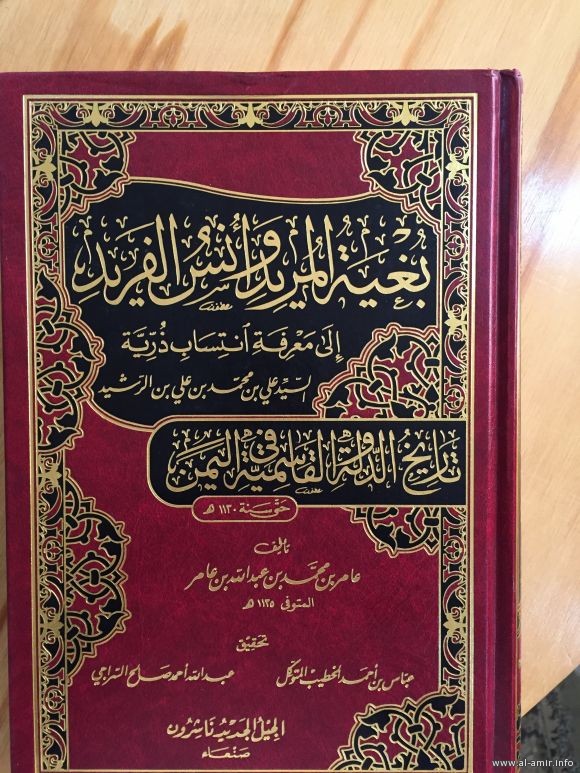 بغية المريد وأنس الفريد
إلى معرفة انتساب ذرية
السيد علي بن محمد بن علي بن الرشيد
تاريخ الدولة القاسمية في اليمن
حتى سنة ١١٣٠ هـ
تأليف
عامر بن محمد بن عبدالله بن عامر
المتوفى ١١٣٥ هـ
تحقيق
عباس بن أحمد الخطيب المتوكل
عبدالله أحمد صلح السراجي
الجيل الجديد ناشرون
صنعاء
www.al-amir.info